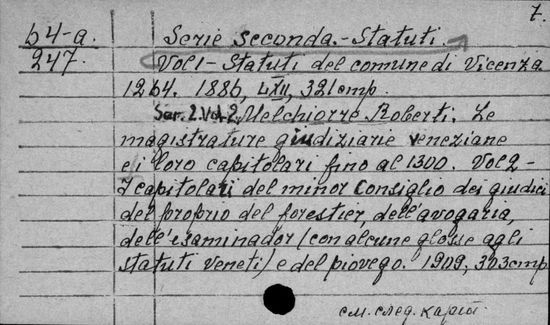 7.
64-a. Serie Seconda.-Statuti
247. Vol 1-Statuti del comune di Vicenza
1264. 1886, LXII, 321 стр.
Ser. 2. Vol. 2. Melchiorre Roberti. Le
magistrature giudiziarie veneziane
e i loro capitolari fino al 1300. Vol 2-
I capitolari del minor Consiglio dei giudici
del proprio del forestier, dell'avogaria,
dell'esaminador (con alcune glosse agli
statuti veneti) e del piovego. 1909, 303 стр.
см. след. карт